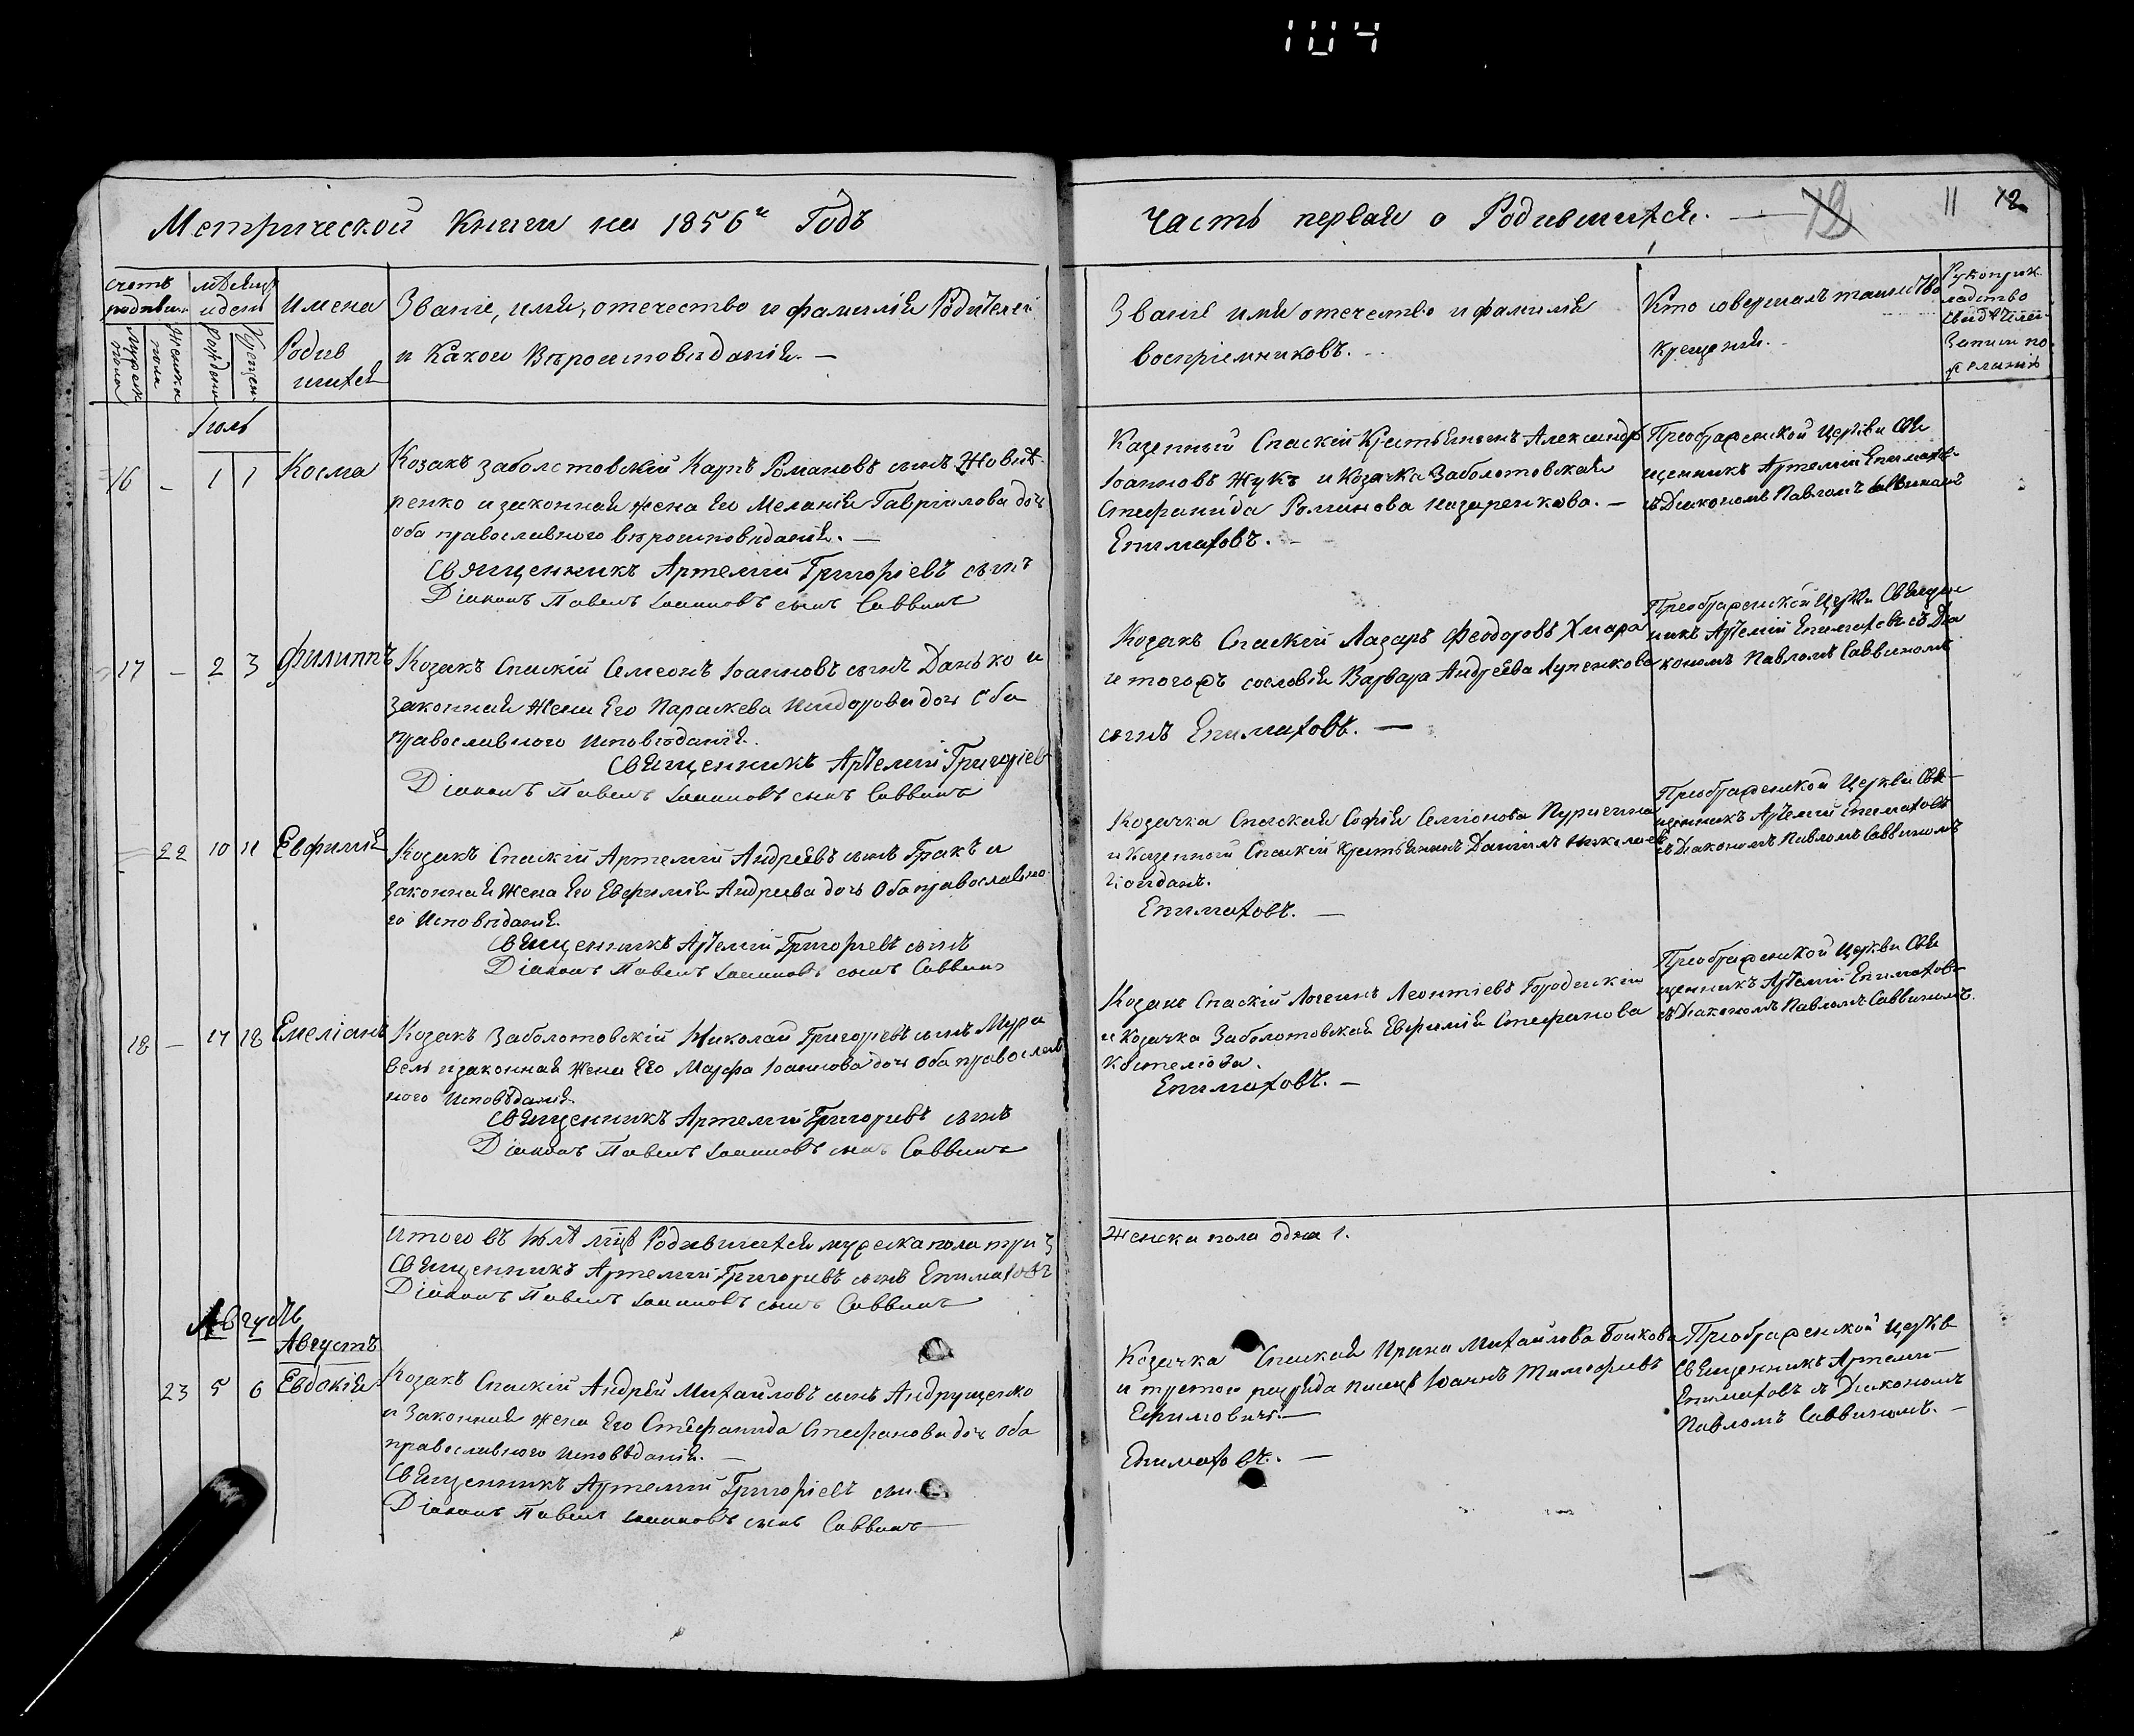 104
Метрической Книги на 1856й Годъ
Часть первая о Родившихся.
12
11 12
Счетъ родивш.
Мужеск пола
Женска пола
Мѣсяцъ и день
Рожден
Крещен
Имена
Родив
шихся
Званіе, имя, отечество и фамилія Родителей
и Какого Вѣроисповѣданія. —
Званіе имя отечество и фамилія
воспріемниковъ.
Кто совершалъ таинство
крещенія.
Рукоприк
ладство
свидѣтелей
Записи по
желанію
Іюль
16 - 1 1 Косма
Козакъ заболотовскій Карпъ Романовъ сынъ
ренко и законная жена Его Меланія Гавріилова доч
оба православного вѣроисповѣданія. —
Священникъ Артемій Григоріевъ сынъ
Діаконъ Павелъ Іоанновъ сынъ Саввинъ
Казенный Спаскій Крестьянинъ Александръ
Іоанновъ Жукъ и Козачка Заболотовская
Стефанида Романова Назаренкова. —
Епимаховъ. —
Преображенской Церкви Свя
щенникъ Артемій Епимаховъ
съ Діакономъ Павломъ Саввиномъ
17 - 2 3 Филиппъ
Козакъ Спаскій Семеонъ Іоанновъ сынъ Данько и
законная Жена Его Параскева Исидорова доч Оба
православного Исповѣданія.
Священникъ Артемій Григоріев
Діаконъ Павелъ Іоанновъ сынъ Саввинъ
Козакъ Спаскій Лазарь Феодоровъ Хмара
и тогожъ сословія Варвара Андреева Лупенкова
сынъ Епимаховъ. —
Преображенской Церкви Священ
никъ Артемій Епимаховъ съ Діа
кономъ Павломъ Саввиномъ
22 10 11 Евфимія
Козакъ Спаскій Артемій Андреевъ сынъ Гракъ и
законная Жена Его Евфимія Андреева дочь Оба православно
го Исповѣданія.
Священникъ Артемій Григоріевъ сынъ
Діаконъ Павелъ Іоанновъ сынъ Саввинъ
Козачка Спаская Софія Семіонова
и Казенной Спаскій Крестьянинъ Даніилъ Николаев
Епимаховъ. —
Преображенской Церкви Свя-
щенникъ Артемій Епимаховъ
съ Діакономъ Павломъ Саввиномъ
18 - 17 18 Емеліанъ
Козакъ Заболотовскій Николай Григорьевъ сынъ Мура
вель и законная Жена Его Марфа Іоаннова дочь Оба православ
ного Исповѣданія.
Священникъ Артемій Григорьевъ сынъ
Діаконъ Павелъ Іоанновъ сынъ Саввинъ
Козакъ Спаскій Логинъ Леонтіевъ Городискій
и Козачка Заболотовская Евфимія Стефанова
Епимаховъ. —
Преображенской Церкви Свя
щенникъ Артемій Епимаховъ
съ Діакономъ Павломъ Саввиномъ.
Итого въ Іюлѣ мцѣ Родившихся мужеска пола три 3
Священникъ Артемій Григорьевъ сынъ Епимаховъ
Діаконъ Павелъ Іоанновъ сынъ Саввинъ
Женска пола одна 1.
Августъ
Августъ
23 5 6 Евдокія
Козакъ Спаскій Андрей Михайловъ сынъ Андрущенко
и Законная Жена Его Стефанида Стефанова доч Оба
православного Исповѣданія. —
Священникъ Артемій Григоріевъ сын
Діаконъ Павелъ Іоанновъ сынъ Саввинъ
Козачка Спаская Ирина Михайлова Бойкова
и третого разряда писецъ Іоаннъ Тимофеевъ
Ефимовичъ. —
Епимаховъ. —
Преображенской Церкв
Священникъ Артемій
Епимаховъ съ Діакономъ
Павломъ Саввиномъ. —